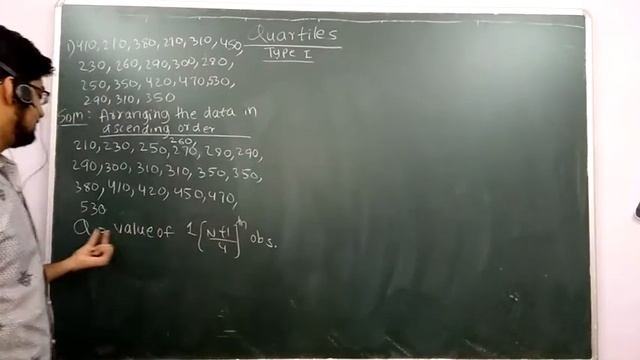 Quartiles
Type I
1) 410, 210, 380, 270, 310, 450,
230, 260, 290, 300, 280,
250, 350, 420, 470, 530,
290, 310, 350
Soln: Arranging the data in
ascending order
210, 230, 250, 260, 270, 280, 290,
290, 300, 310, 310, 350, 350,
380, 410, 420, 450, 470,
530
Q = value of 1 [N+1/4]th obs.